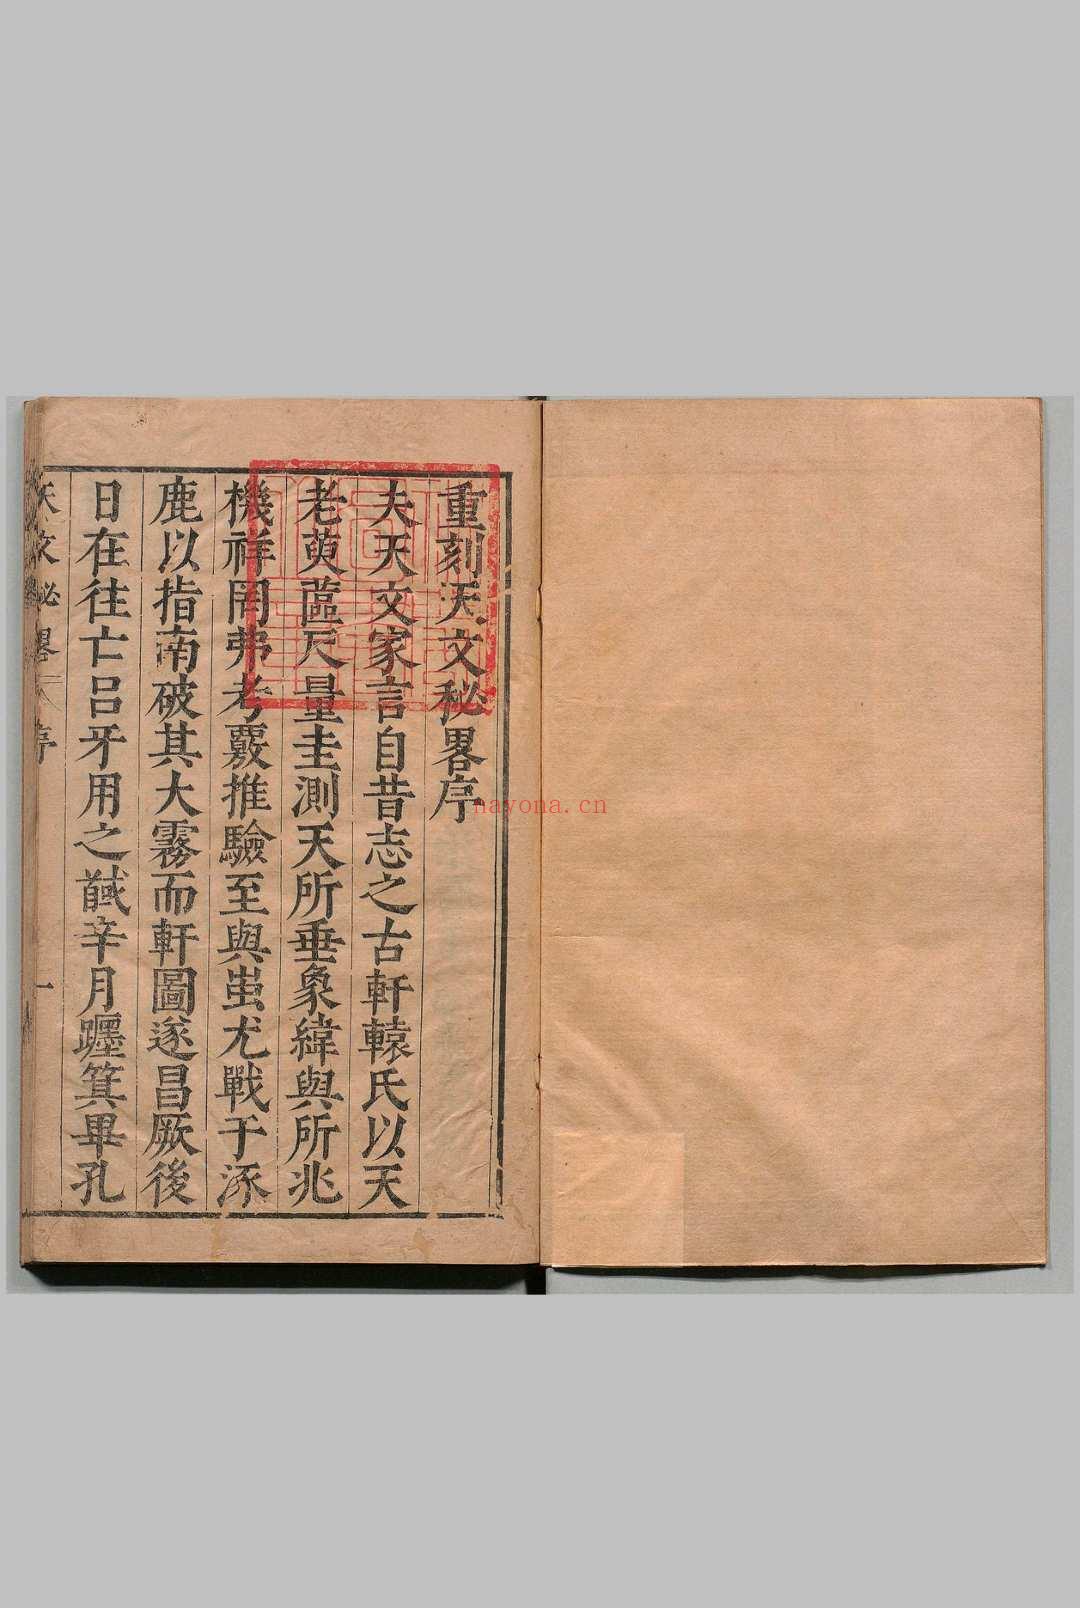 重刻天文秘畧序
夫天文家言自昔志之古軒轅氏以天
老萸蓲尺量圭測天所垂象緯與所兆
機祥罔弗考覈推驗至與蚩尤戰于涿
鹿以指南破其大霧而軒圖遂昌厥後
日在往亡呂牙用之馘辛月躔箕畢孔
天文秘畧 序 一
nayona.cn